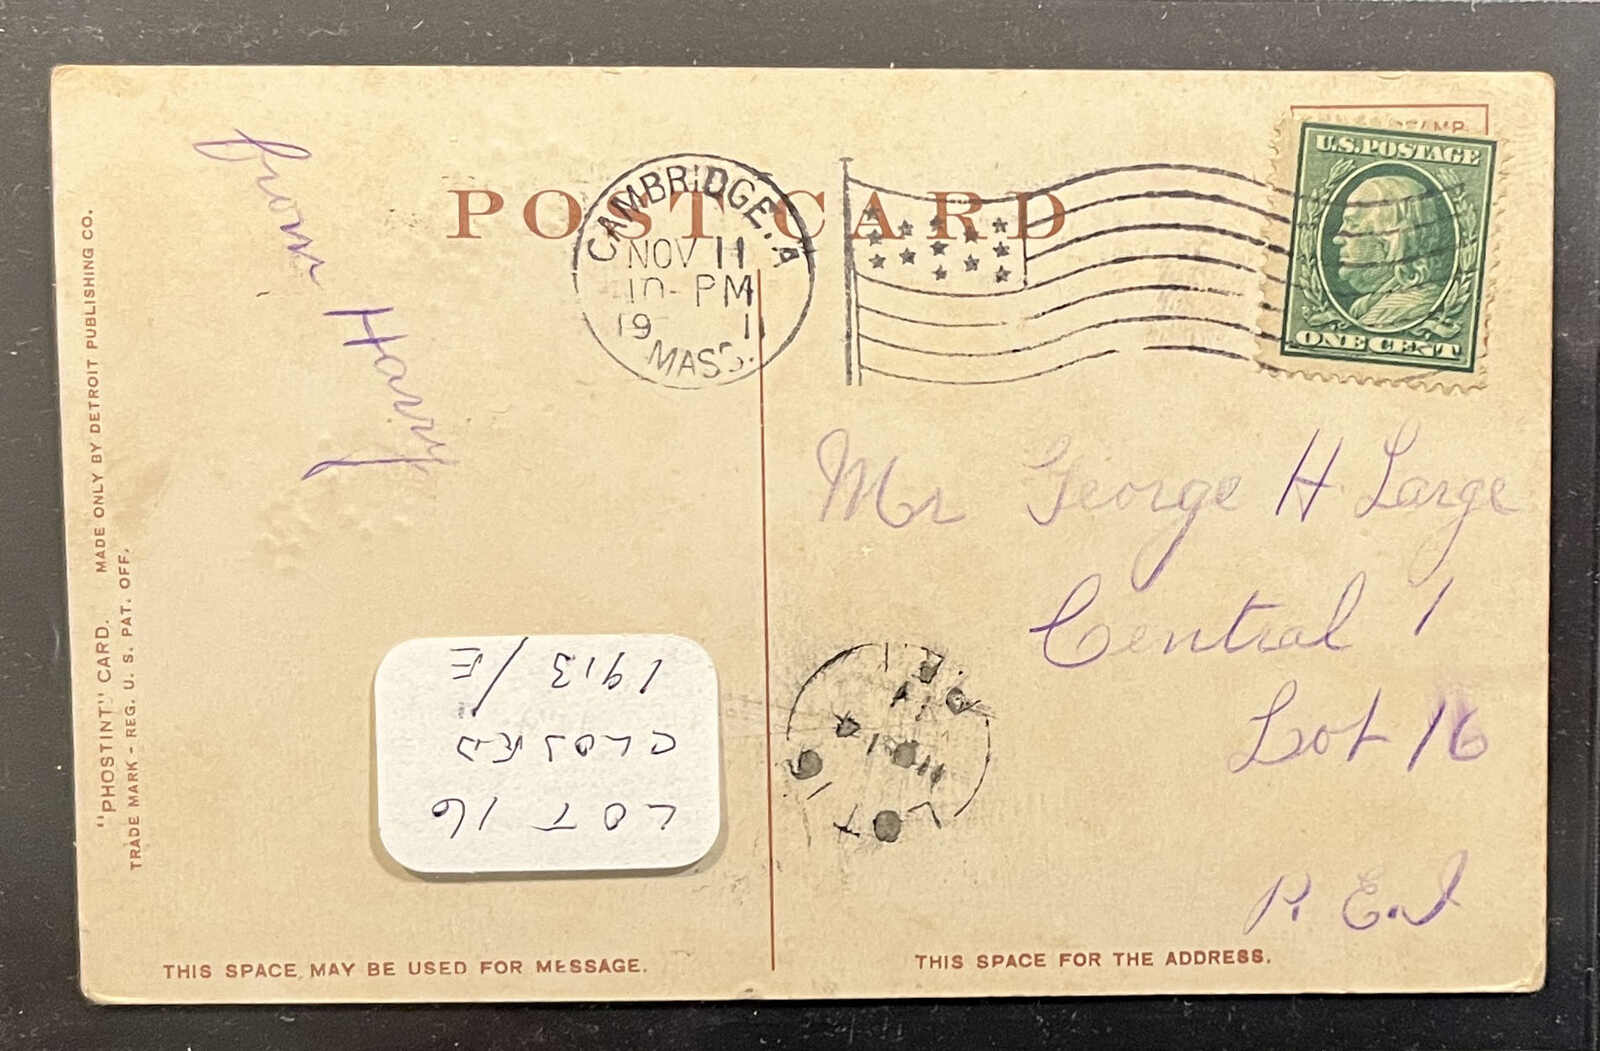 "PHOSTINT" CARD. MADE ONLY BY DETROIT PUBLISHING CO.
TRADE MARK - REG. U. S. PAT. OFF.
from Harry
POST CARD
CAMBRIDGE. A
NOV 11
10-PM
19 1
MASS.
STAMP
U.S. POSTAGE
ONE CENT
Mr George H Large
Central 1
Lot 16
P. E. I
LOT 16
CLOSED
1913/E
THIS SPACE MAY BE USED FOR MESSAGE.
THIS SPACE FOR THE ADDRESS.